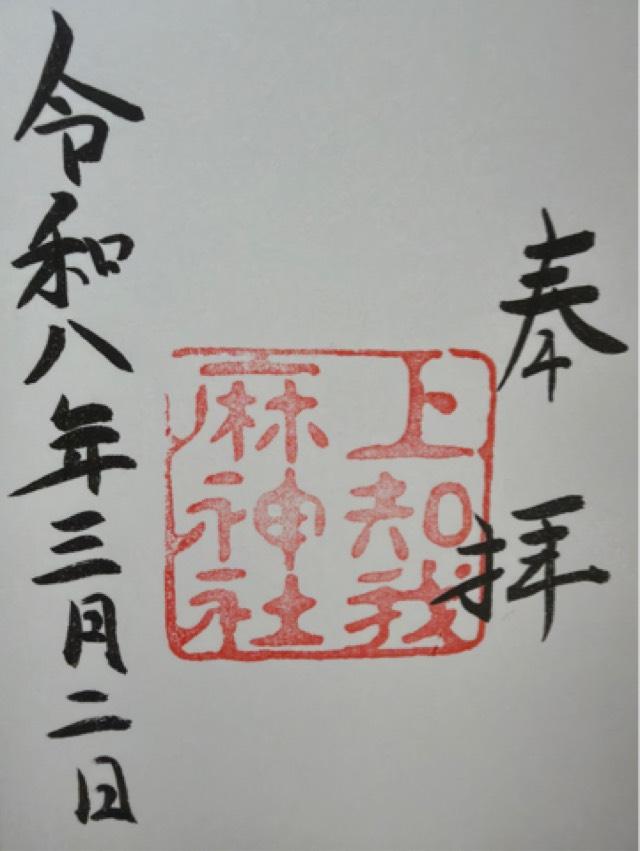 奉拝
上知我
麻神社
令和八年三月二日